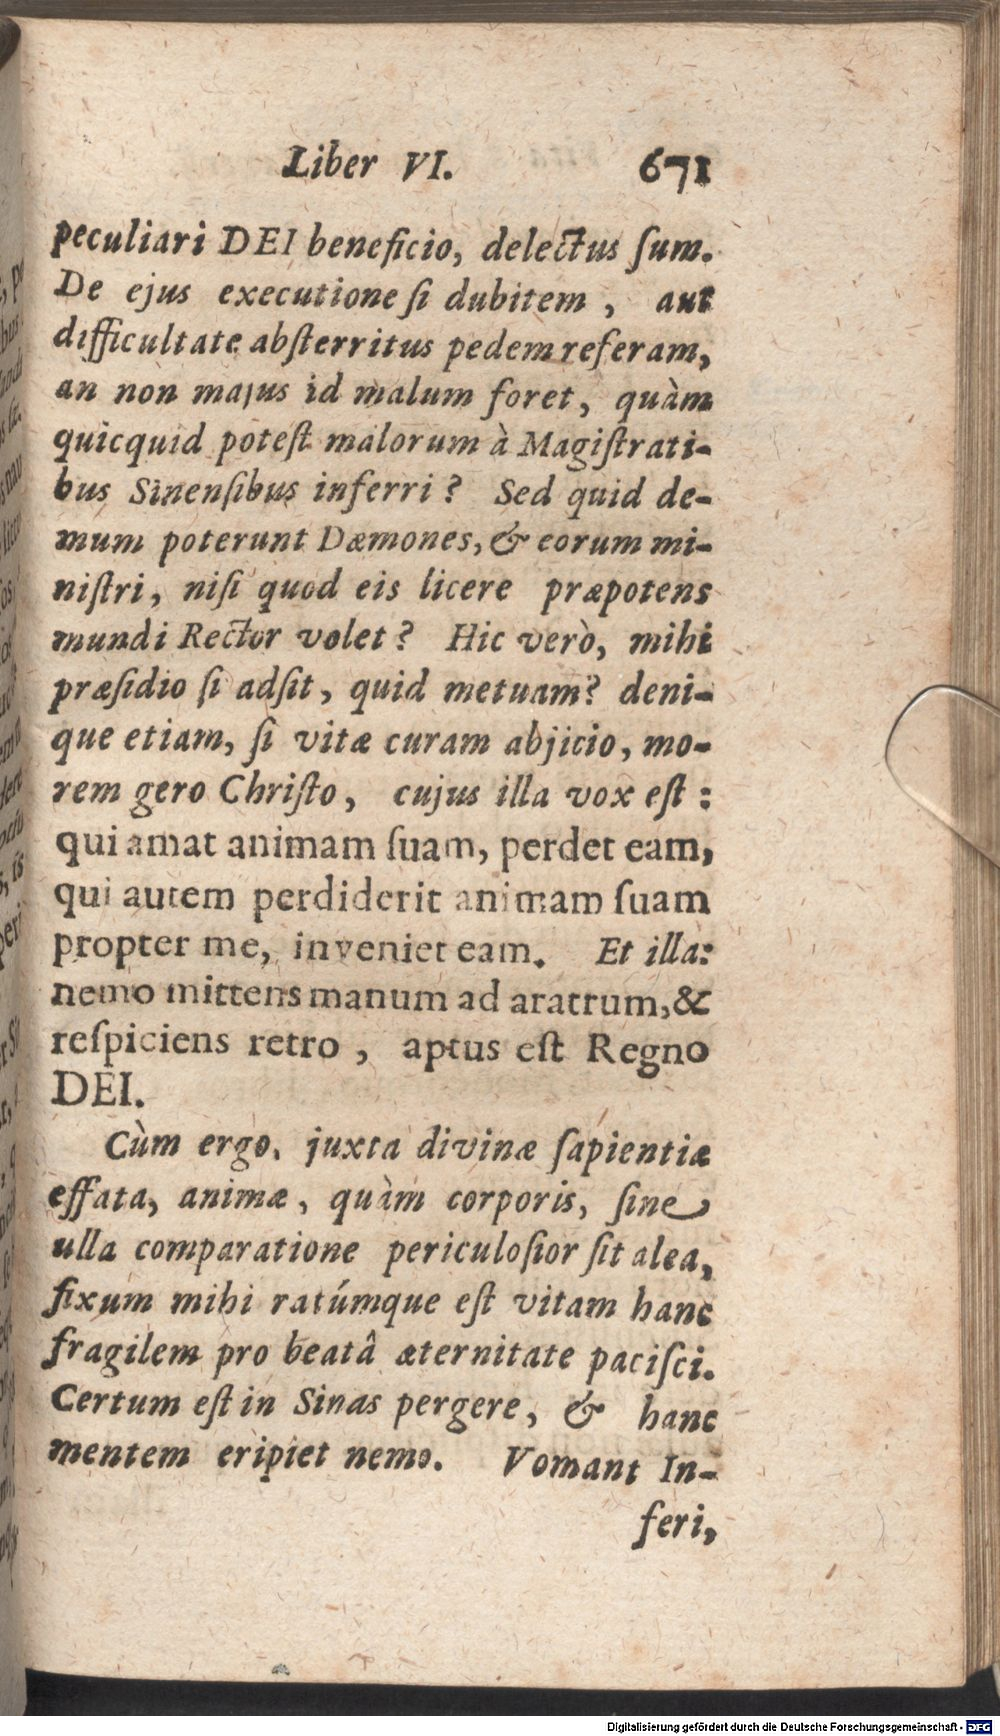 Liber VI. 671
peculiari DEI beneficio, delectus ſum.
De ejus executione ſi dubitem , aut
difficultate abſterritus pedem referam,
an non majus id malum foret, quàm
quicquid poteſt malorum à Magiſtrati-
bus Sinenſibus inferri? Sed quid de-
mum poterunt Dæmones, & eorum mi-
niſtri, niſi quod eis licere præpotens
mundi Rector volet? Hic verò, mihi
præſidio ſi adſit, quid metuam? deni-
que etiam, ſi vitæ curam abjicio, mo-
rem gero Chriſto, cujus illa vox eſt :
qui amat animam ſuam, perdet eam,
qui autem perdiderit animam ſuam
propter me, inveniet eam. Et illa:
nemo mittens manum ad aratrum, &
reſpiciens retro , aptus eſt Regno
DEI.
Cùm ergo, juxta divinæ ſapientiæ
effata, animæ, quàm corporis, ſine
ulla comparatione periculoſior ſit alea,
fixum mihi ratúmque eſt vitam hanc
fragilem pro beatâ æternitate paciſci.
Certum eſt in Sinas pergere, & hanc
mentem eripiet nemo. Vomant In-
feri,
Digitalisierung gefördert durch die Deutsche Forschungsgemeinschaft - DFG